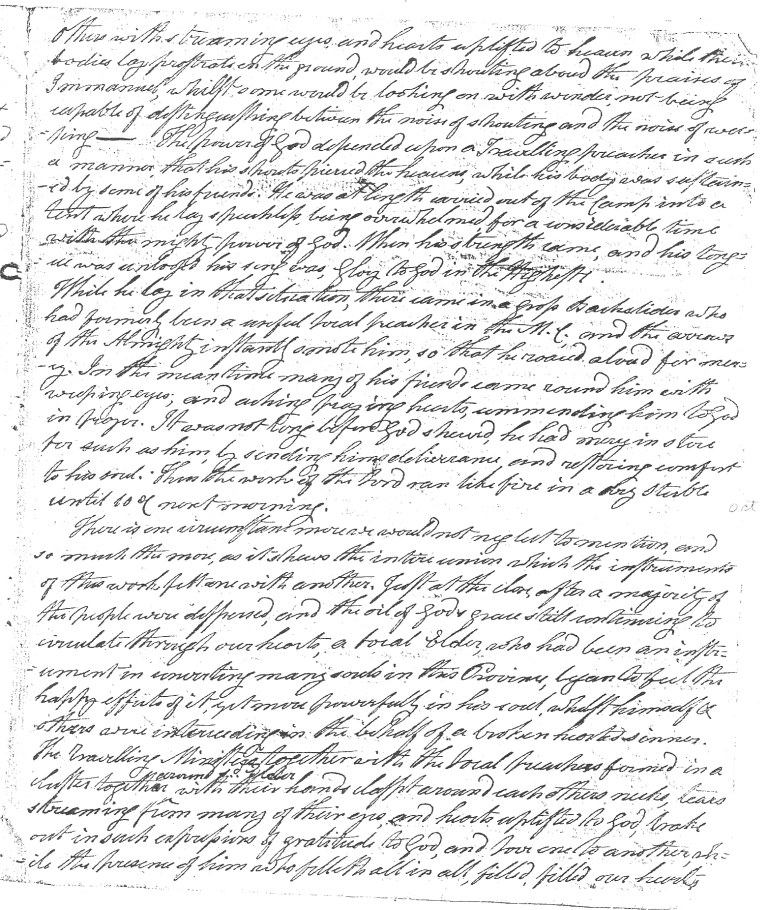 others with streaming eyes and hearts uplifted to heaven while their
bodies lay prostrate on the ground, would be shouting aloud the praises of
Immanuel, whilst some would be looking on with wonder, not being
capable of distinguishing between the noise of shouting and the noise of wee-
-ping — The power of God depended upon a Travelling preacher in such
a manner that his shouts pierced the heavens, while his body was sustain-
-ed by some of his friends. He was at length carried out of the Camp into a
tent where he lay speechless, being overwhelmed for a considerable time
with the mighty power of God. When his strength came, and his tong-
ue was unloosed his song was Glory to God in the Highest!
While he lay in that situation, there came in a gross Backslider who
had formerly been a useful local preacher in the M. C, and the arrows
of the Almighty instantly smote him so that he roared aloud for mer-
-y. In the meantime many of his friends came round him with
weeping eyes, and aching praying hearts, commending him to God
in prayer. It was not long before God shewed, he had mercy in store
for such as him, by sending him deliverance and restoring comfort
to his soul. Thus the work of the Lord ran like fire in a dry stubble
until 10 oC next morning.
There is one circumstance more we would not neglect to mention, and
so much the more, as it shews the intire union which the instruments
of this work felt one with another. Just at the close, after a majority of
the people were dispersed, and the oil of God's grace still continuing to
circulate through our hearts, a local Elder, who had been an instr-
-ument in converting many souls in this Province, began to feel the
happy effects of it yet more powerfully in his soul, whilst himself &
others were interceeding in the behalf of a broken hearted sinner.
The Travelling Ministers together with the local preachers formed in a
around sd. Elder
cluster together with their hands claspt around each others necks, tears
streaming from many of their eyes, and hearts uplifted to God, brake
out in such expressions of gratitude to God, and love one to another, wh-
-ile the presence of him who filleth all in all, filled, filled our hearts
oct